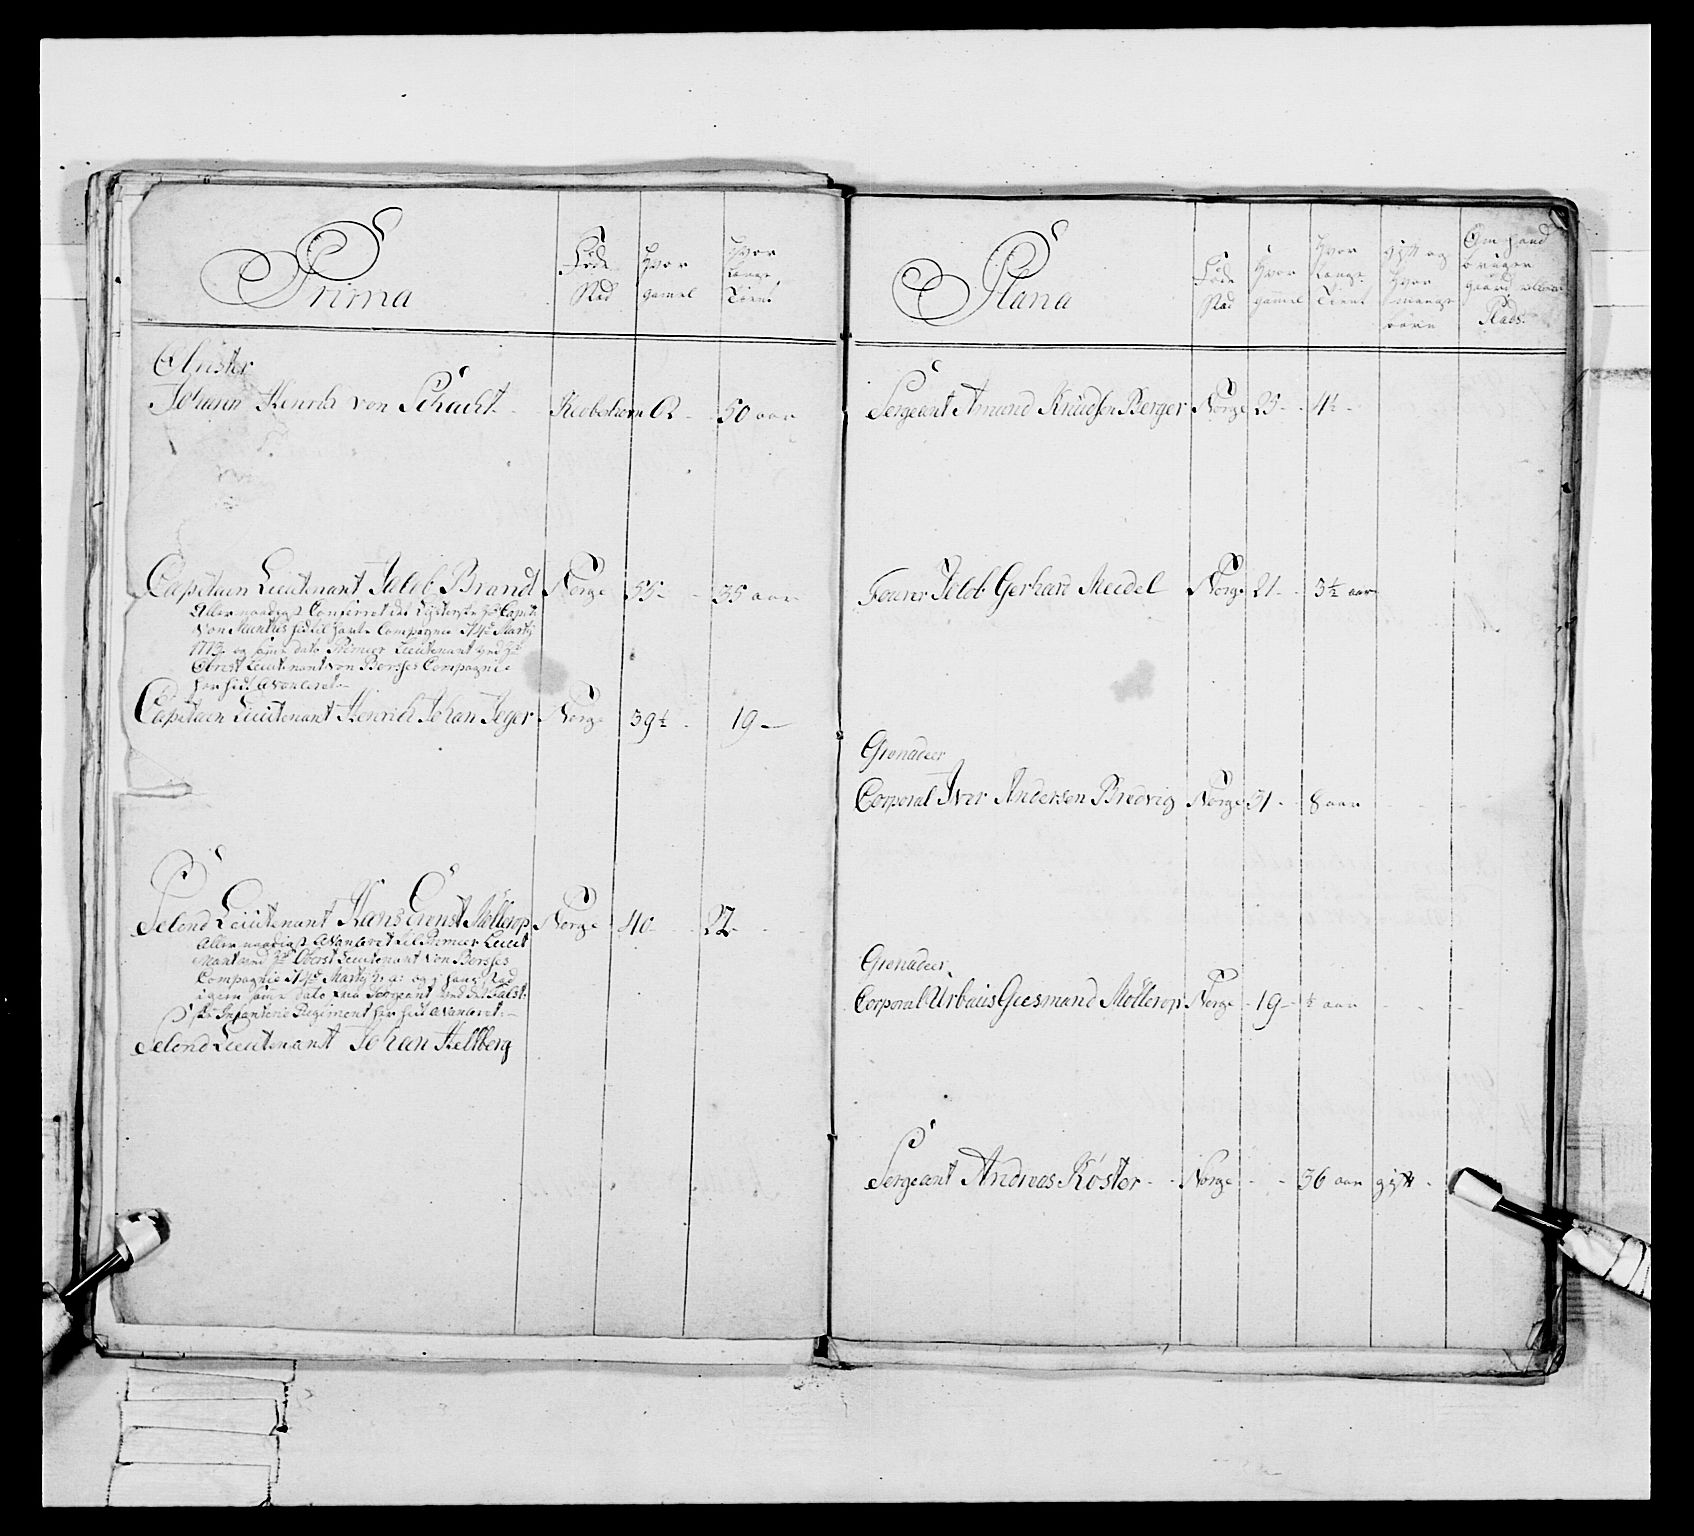 Prima
Føde
Stæd
Hvor
gamel
Hvor
Længe
Tient
Obrister
Johann Henrich von Schacht - Kiøbehavn 62 - 50 aar
Capitain Lieutenant Jacob Brandt Norge 55 - 35 aar
Allernaadigst Conferert det
von Munthes hidtil hafte Compagnie d 14de Martij
1773 og samme dato Premier Lieutenant ved
Obrist Lieutenant von Borsses Compagnie
her hid Avanceret
Capitain Lieutenant Henrich Johan Jeger Norge 39½ - 19 -
Second Lieutenant Hans Ernst Møllerop Norge 40 - 22 -
Allernaadigst Avanceret til Premier Lieut
nant ved Obrist Lieutenant von Borsses
Compagnie 14de Martij h: a: og i hans Stæd
igien samme dato fra Sergeant ved det
Infanterie Regiment her hid Avanceret
Second Lieutenant Johan Heltberg
Plana
Føde
Stæd
Hvor
gammel
Hvor
Længe
Tient
gift og
Hvor
mange
børn
Om hand
bruger
gaard eller
Plads
Sergeant Amund Knudsen Berger Norge 25 - 4½ -
Fourer Jacob Gerhard Meidel Norge 21 - 3½ aar
Grenadeer
Corporal Iver Andersen Bredvig Norge 31 - 8 aar
Grenadeer
Corporal Urbanus Geesmand Møllerop Norge - 19 - ½ aar
Sergeant Andreas Köster - - Norge - - 36 aar gift -